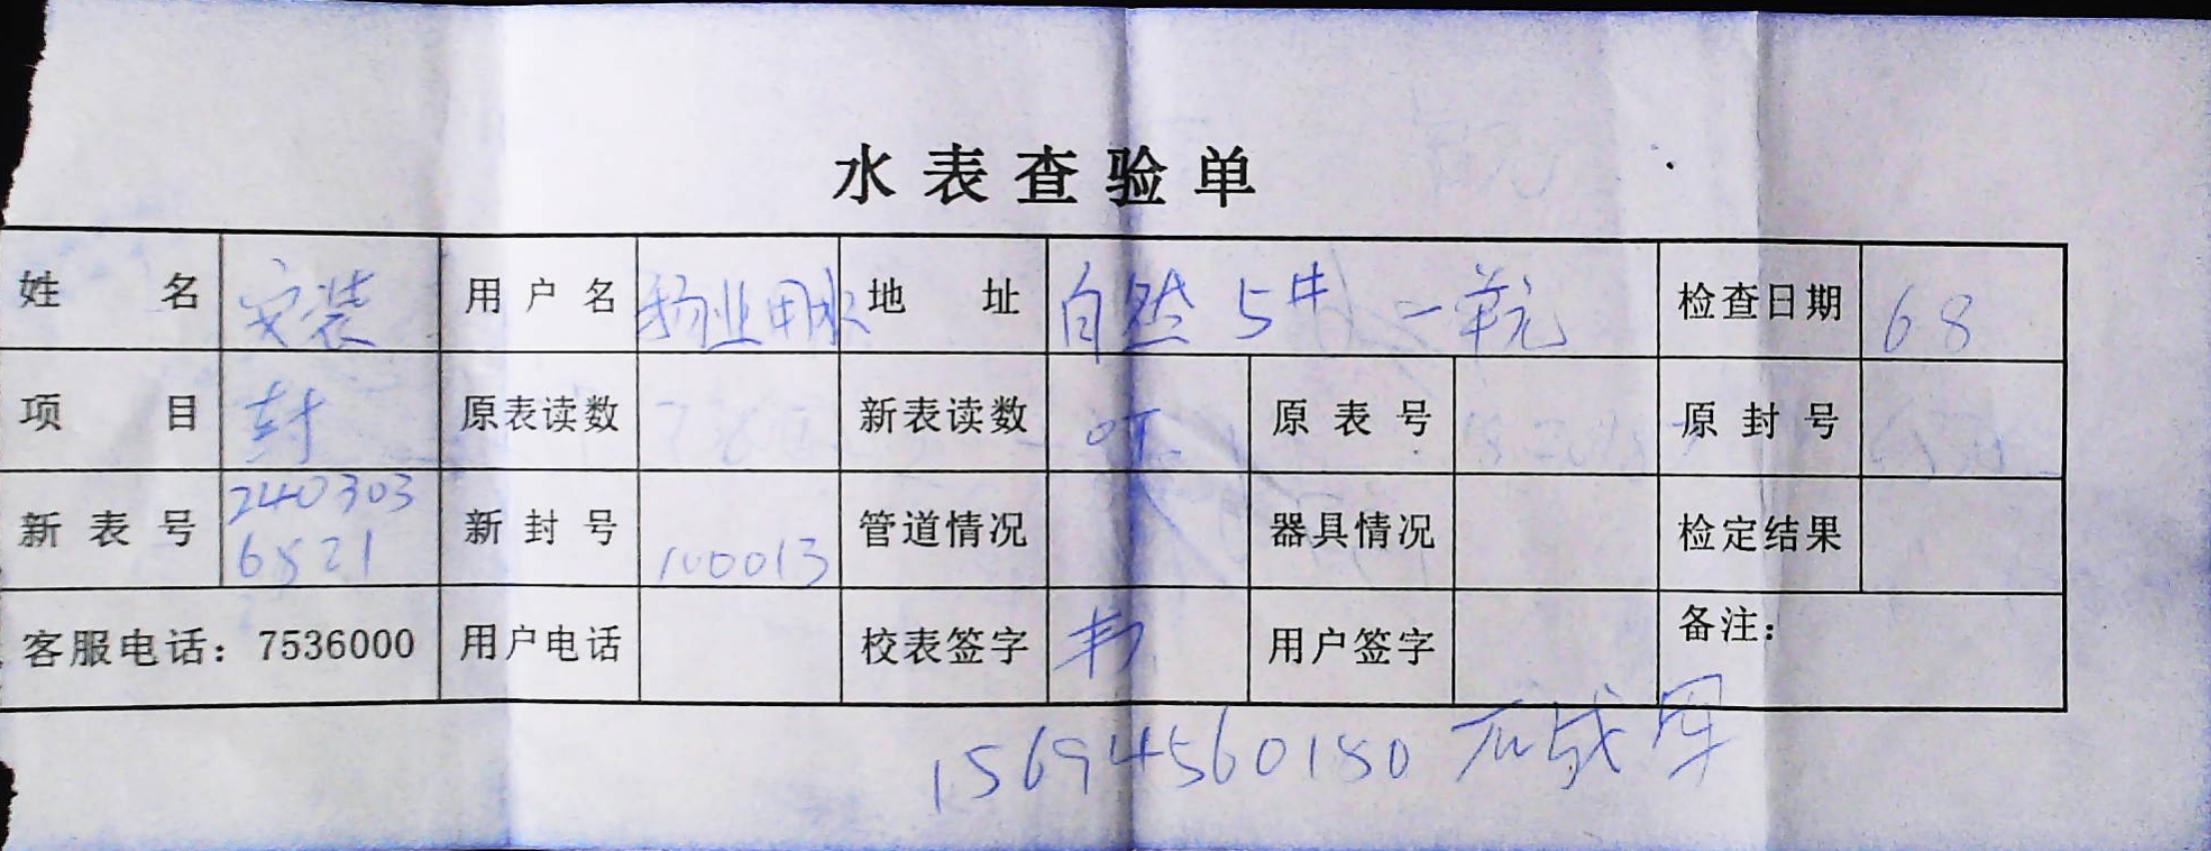 水表查验单
姓名 安装 用户名 物业用水 地址 自然 5# 一单元 检查日期 68
项目 封 原表读数 新表读数 原表号 原封号
新表号 240303 6821 新封号 100013 管道情况 器具情况 检定结果
客服电话：7536000 用户电话 校表签字 用户签字 备注：
15694560180